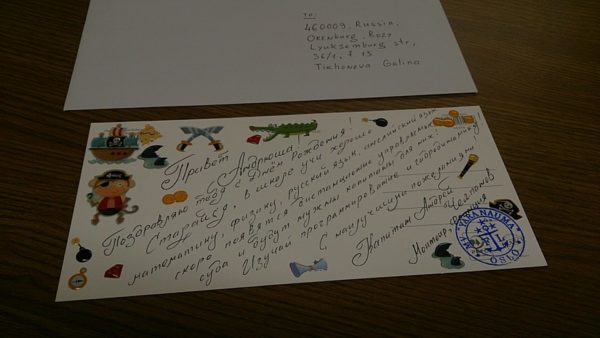 TO:
460009, RUSSIA,
ORENBURG, ROZY
LYUKSEMBURG str,
36/1, f 13
Tichoneva Galina
Привет Андрюша!
Поздравляю тебя с Днём Рождения!
Старайся, в школе учи хорошо
математику, физику, русский язык, английский язык
скоро появятся дистанционно управляемые
суда и будут нужны капитаны для них.
Изучай программирование и
С наилучшими пожеланиями
Капитан Андрей
TAKANAURA
OSLO